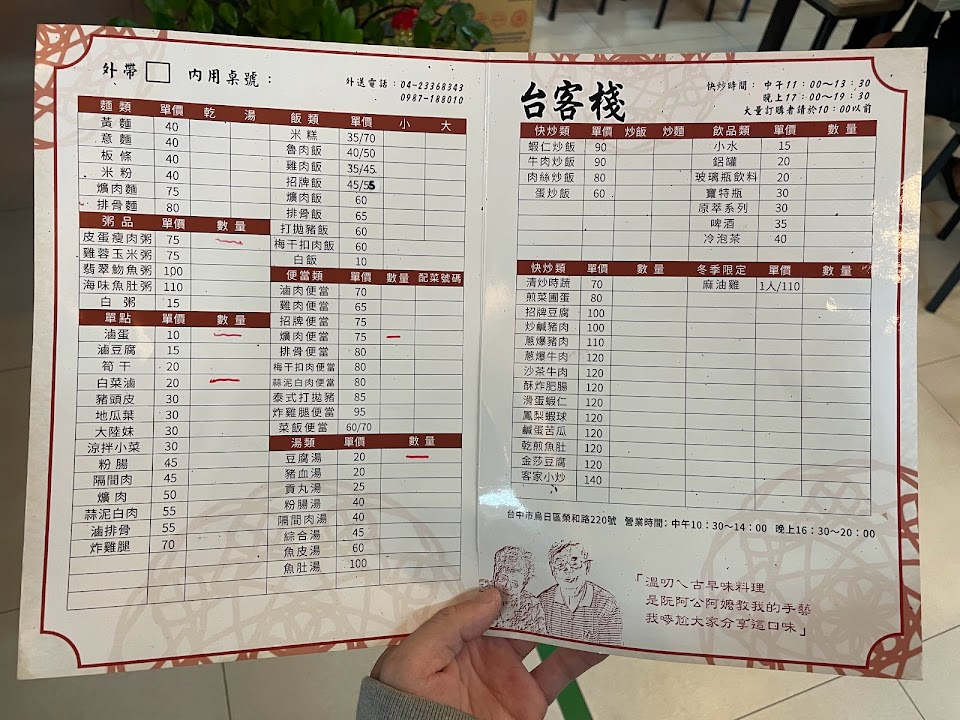 外帶 內用桌號：
外送電話：04-23368343
0987-188010
麵類 單價 乾 湯
黃麵 40
意麵 40
板條 40
米粉 40
爌肉麵 75
排骨麵 80
粥品 單價 數量
皮蛋瘦肉粥 75
雞蓉玉米粥 75
翡翠魩魚粥 100
海味魚肚粥 110
白粥 15
單點 單價 數量
滷蛋 10
滷豆腐 15
筍干 20
白菜滷 20
豬頭皮 30
地瓜葉 30
大陸妹 30
涼拌小菜 30
粉腸 45
隔間肉 45
爌肉 50
蒜泥白肉 55
滷排骨 55
炸雞腿 70
飯類 單價 小 大
米糕 35/70
魯肉飯 40/50
雞肉飯 35/45
招牌飯 45/55
爌肉飯 60
排骨飯 65
打拋豬飯 60
梅干扣肉飯 60
白飯 10
便當類 單價 數量 配菜號碼
滷肉便當 70
雞肉便當 65
招牌便當 75
爌肉便當 75
排骨便當 80
梅干扣肉便當 80
蒜泥白肉便當 80
泰式打拋豬 85
炸雞腿便當 95
菜飯便當 60/70
湯類 單價 數量
豆腐湯 20
豬血湯 20
貢丸湯 25
粉腸湯 40
隔間肉湯 40
綜合湯 45
魚皮湯 60
魚肚湯 100
台客棧
快炒時間：中午11：00～13：30
晚上17：00～19：30
大量訂購者請於10：00以前
快炒類 單價 炒飯 炒麵
蝦仁炒飯 90
牛肉炒飯 90
肉絲炒飯 80
蛋炒飯 60
飲品類 單價 數量
小水 15
鋁罐 20
玻璃瓶飲料 20
寶特瓶 30
原萃系列 30
啤酒 35
冷泡茶 40
快炒類 單價 數量
清炒時蔬 70
煎菜圃蛋 80
招牌豆腐 100
炒鹹豬肉 100
蔥爆豬肉 110
蔥爆牛肉 120
沙茶牛肉 120
酥炸肥腸 120
滑蛋蝦仁 120
鳳梨蝦球 120
鹹蛋苦瓜 120
乾煎魚肚 120
金莎豆腐 120
客家小炒 140
冬季限定 單價 數量
麻油雞 1人/110
台中市烏日區榮和路220號 營業時間：中午10：30～14：00 晚上16：30～20：00
「溫叨ㄟ古早味料理
是阮阿公阿嬤教我的手藝
我嘜尬大家分享這口味」